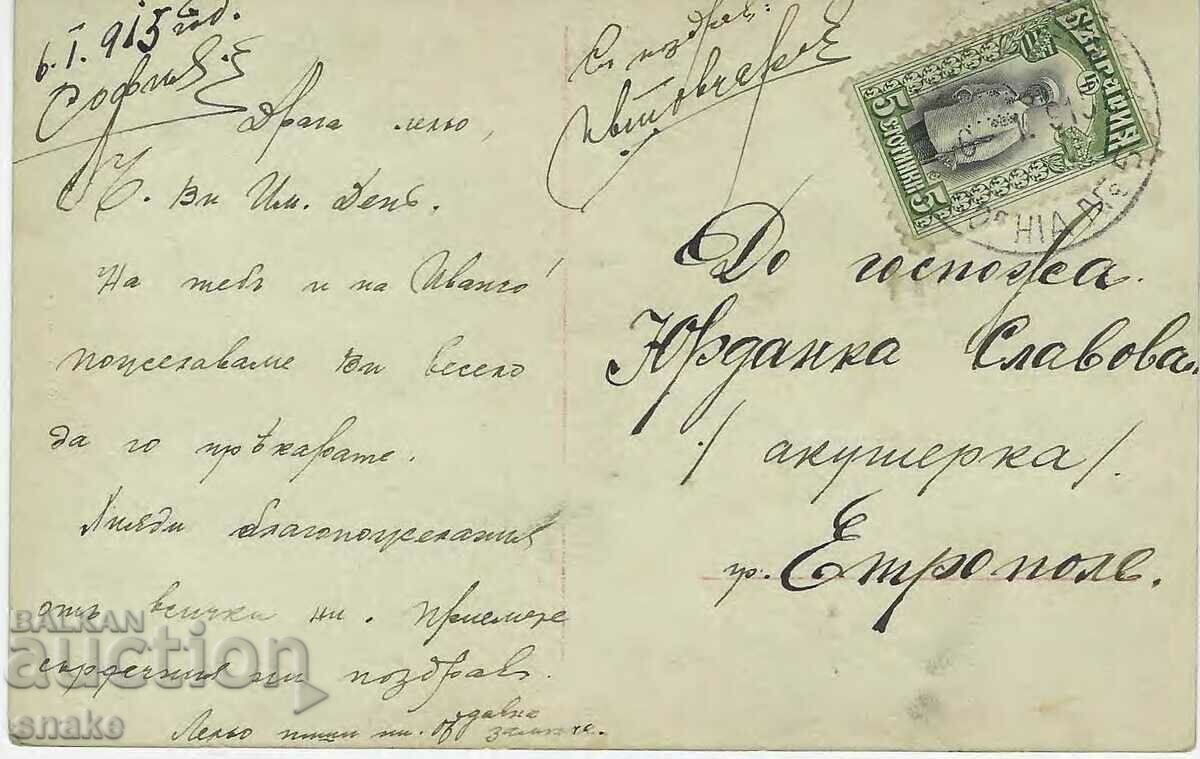 6.I.915 год.
София
Драга лельо,
Ч. Ви Им. День.
На тебъ и на Иванчо
пожелаваме Ви весело
да го прѣкарате.
Хиляди благопожелания
отъ всички ни. Приемете
сърдечния ни поздрав.
Лельо пиши ни. отдавна
Съ поздрав:
БЪЛГАРИЯ
5 СТОТИНКИ 5
До госпожа
Юрданка Славова
/акушерка/.
гр. Етрополе.
BALKAN
auction
snake